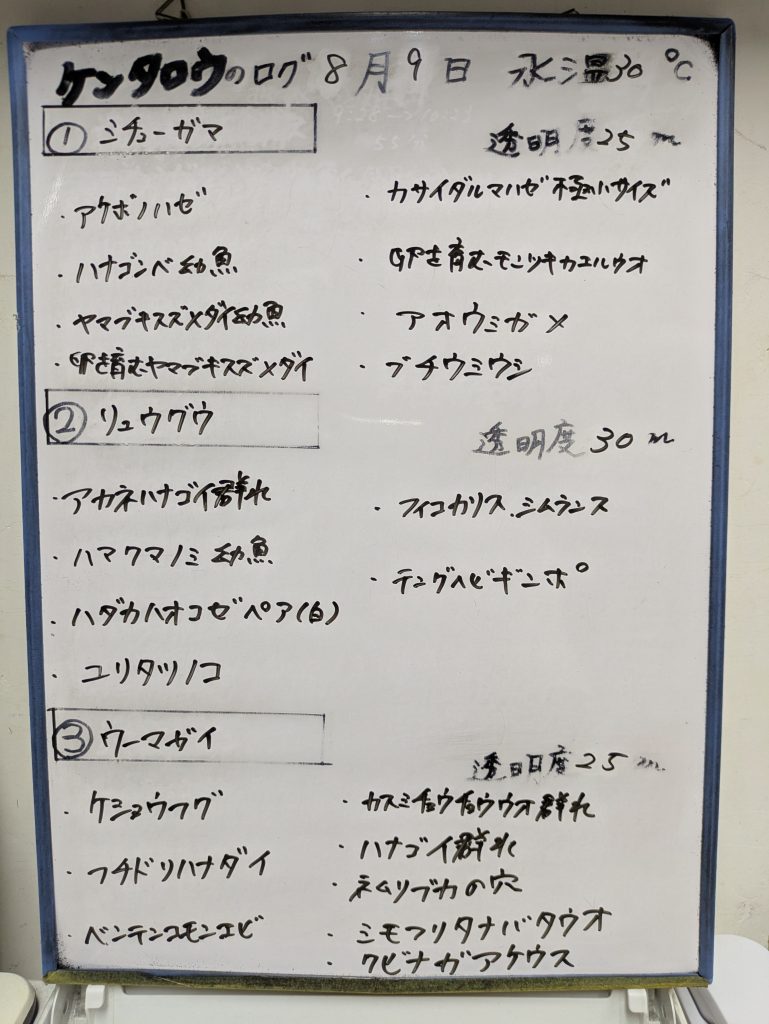 ケンタロウのログ 8月9日 水温30℃
① ミチューガマ 透明度25m
・アケボノハゼ
・ハナゴンベ幼魚
・ヤマブキスズメダイ幼魚
・卵を育むヤマブキスズメダイ
・カサイダルマハゼ極小サイズ
・卵を育むモンツキカエルウオ
・アオウミガメ
・ブチウミウシ
② リュウグウ 透明度30m
・アカネハナゴイ群れ
・ハマクマノミ幼魚
・ハダカハオコゼペア(白)
・ユリタツノコ
・フィコカリス.シムランス
・テングヘビギンポ
③ ウーマガイ 透明度25m
・ケショウフグ
・フチドリハナダイ
・ベンテンコモンエビ
・カスミチョウチョウウオ群れ
・ハナゴイ群れ
・ネムリブカの穴
・シモフリタナバタウオ
・クビナガアケウス